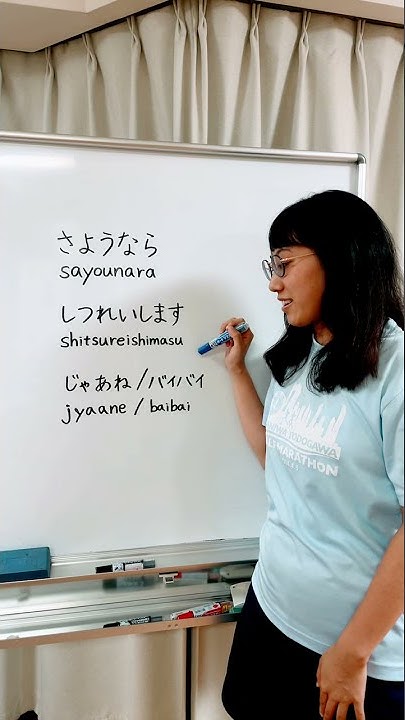 さようなら
sayounara
しつれいします
shitsureishimasu
じゃあね/バイバイ
jyaane / baibai
YODOGAWA
MARATHON